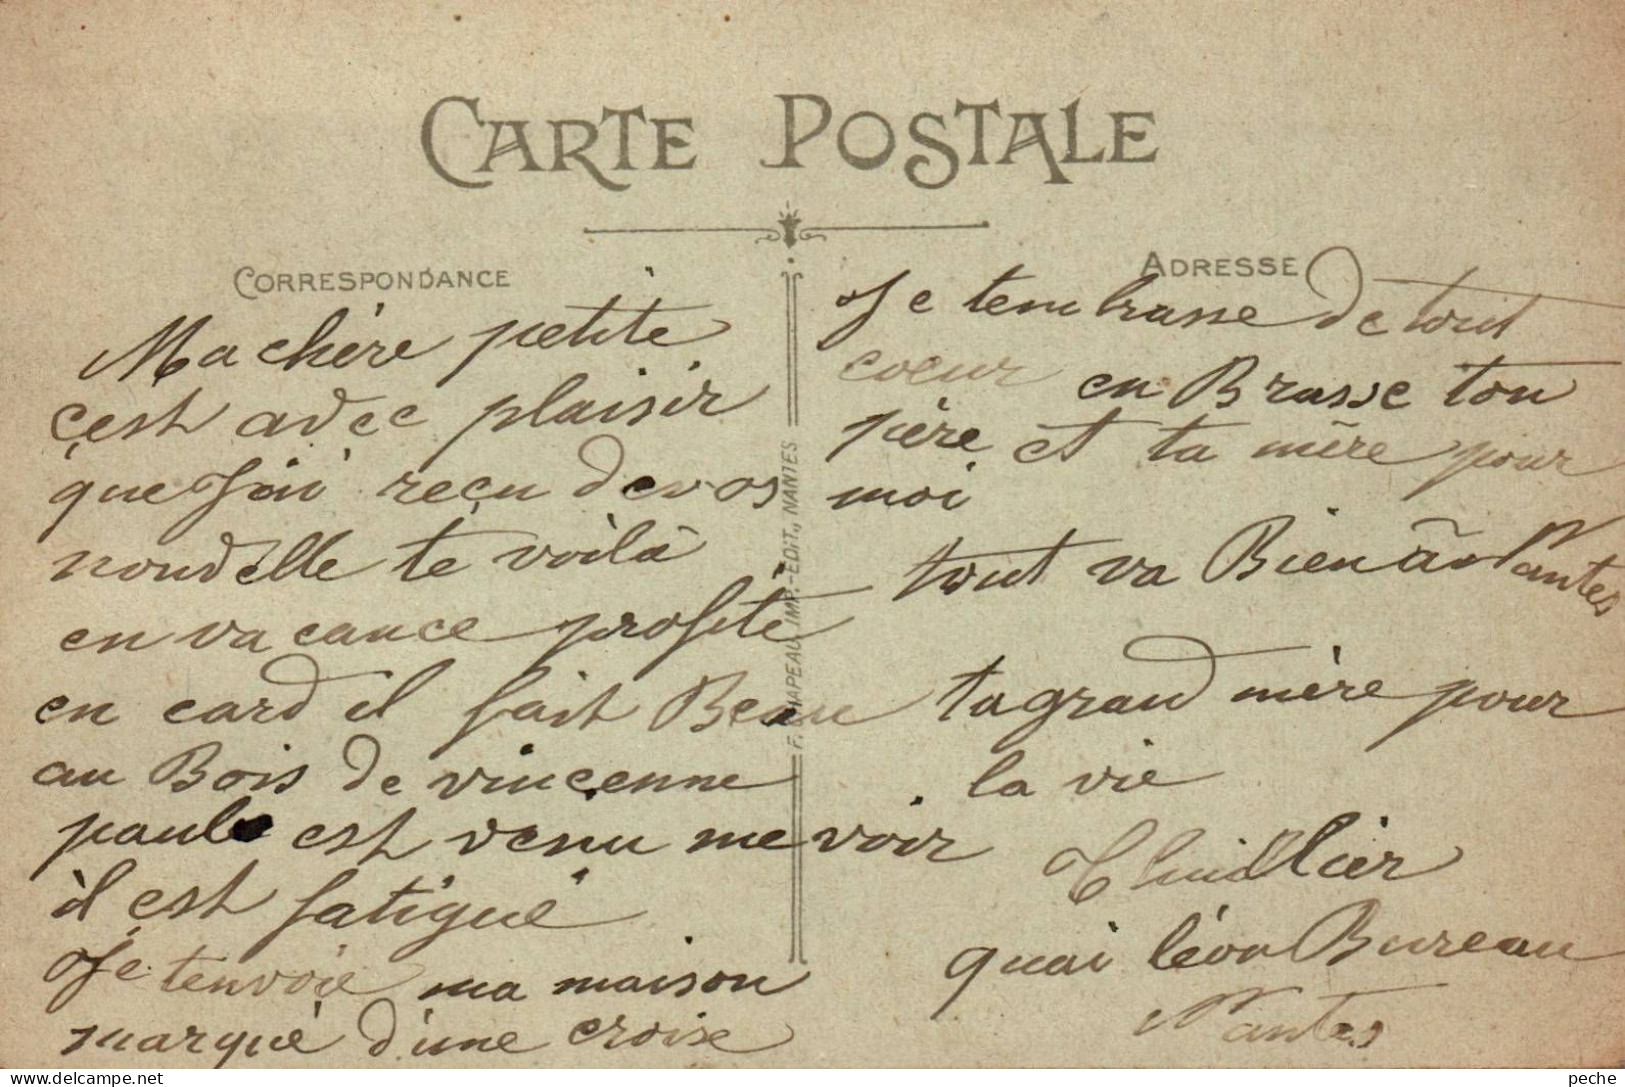 CARTE POSTALE
CORRESPONDANCE
Ma chère petite
çest avec plaisir
que Jai reçu de vos
nouvelle te voilà
en vacance profite
en card il fait Beau
au Bois de vincenne
paul est venu me voir
il est fatigué
Je tenvoie ma maison
marqué d'une croix
F. CHAPEAU, IMP.-EDIT., NANTES
ADRESSE
Je tembrasse de tout
coeur en Brasse ton
père et ta mère pour
moi
tout va Bien à Nantes
ta grand mère pour
la vie
Thuillier
quai léon Bureau
Nantes
peche